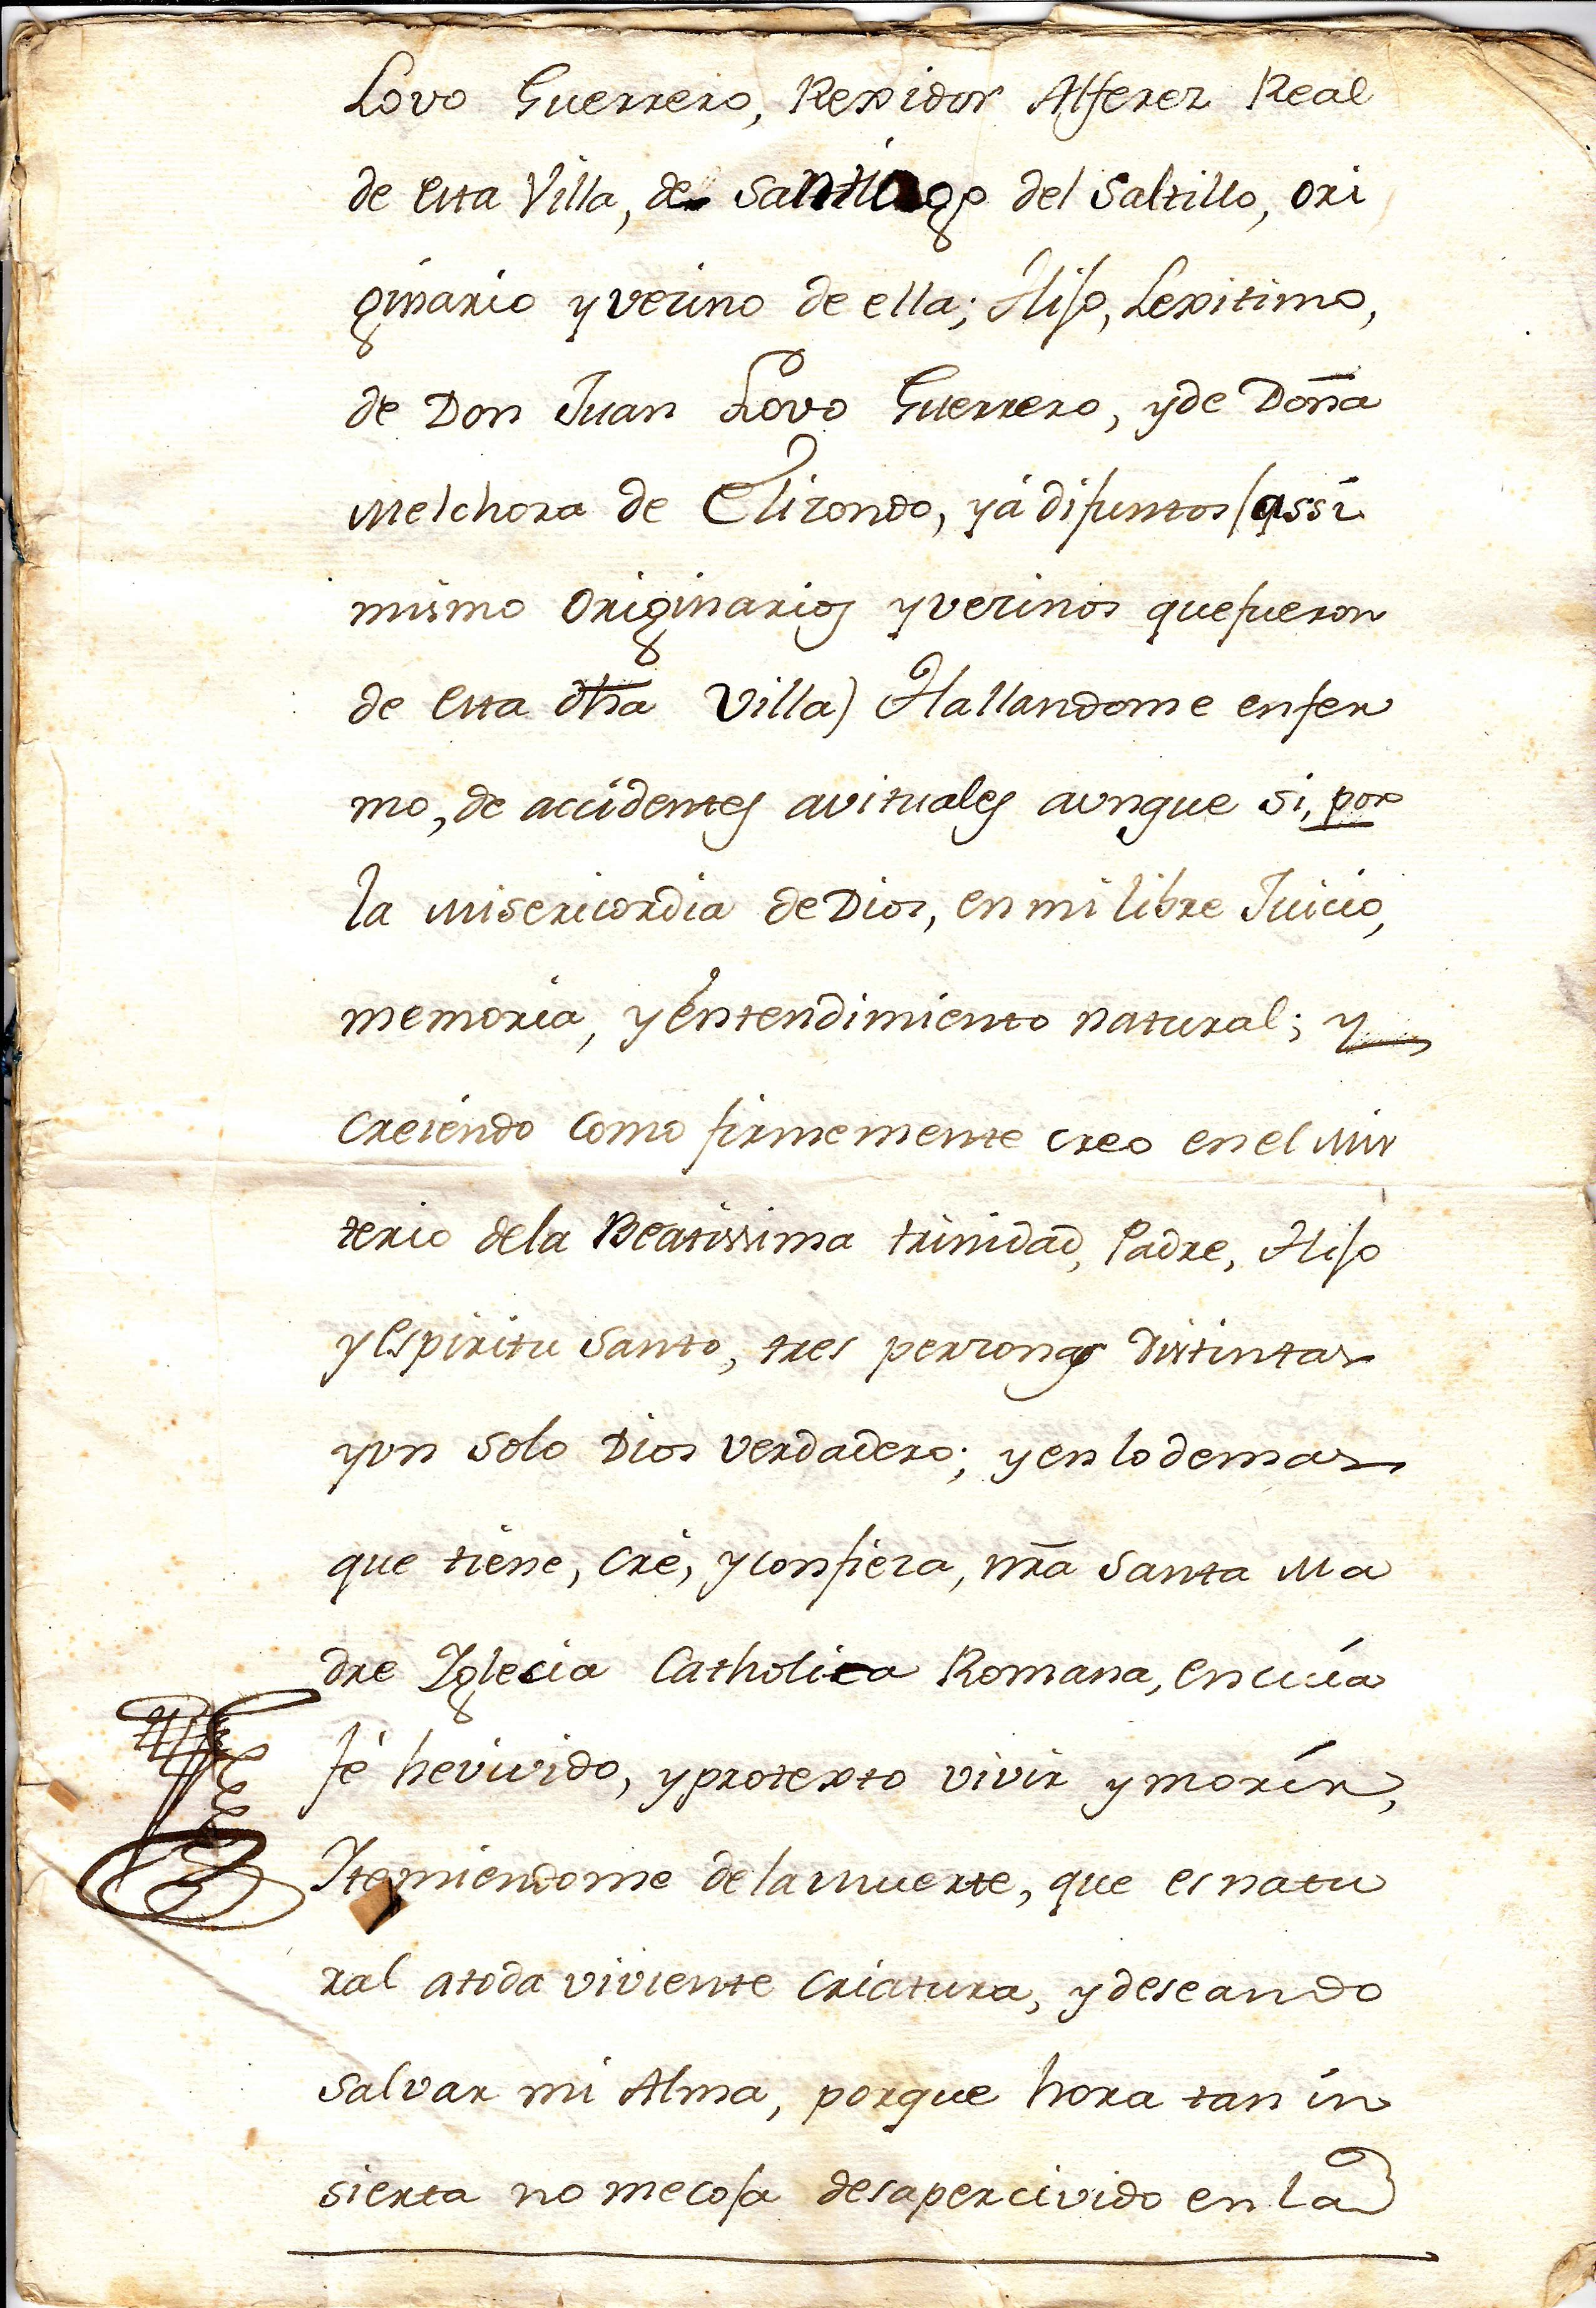 Lovo Guerrero, Rexidor Alferez Real
de esta Villa, de Santiago del Saltillo, ori
ginario y vezino de ella; Hijo, Lexitimo,
de Don Juan Lovo Guerrero, y de Doña
Melchora de Elizondo, yá difuntos (assi
mismo originarios y vezinos que fueron
de esta dha Villa) Hallandome enfer
mo, de accidentes avituales aunque si, por
la misericordia de Dios, en mi libre Juicio,
memoria, y entendimiento natural; y
creiendo como firmemente creo en el mis
terio de la Beatissima trinidad, Padre, Hijo
y espiritu Santo, tres perzonas distintas
y vn solo Dios verdadero; y en lo demas
que tiene, cré, y confieza, nra Santa Ma
dre Iglecia Catholica Romana, en cuia
fé he vivido, y protexto vivir y morir,
Itemiendome de la muerte, que es natu
ral a toda viviente criatura, y deseando
salvar mi Alma, porque hora tan in
sierta no me coja desapercivido en la